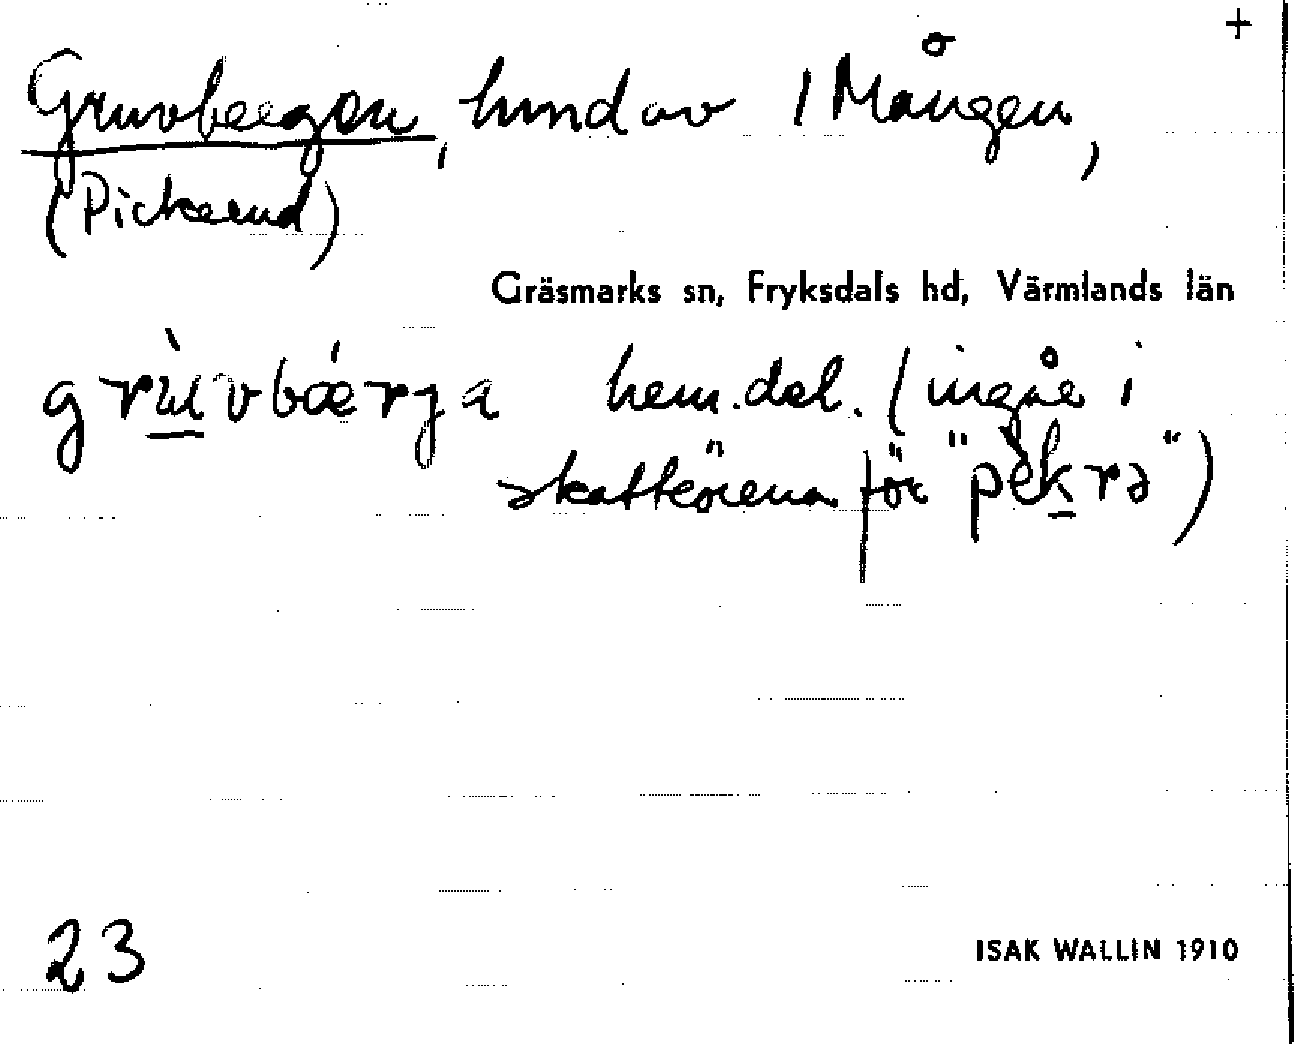 +
Gruvbergen, hmd av 1 Mången,
(Pickerud)
Gräsmarks sn, Fryksdals hd, Värmlands län
grùvbǽrja hem.del. (ingår i
skattörena för "pèkrə")
23
ISAK WALLIN 1910